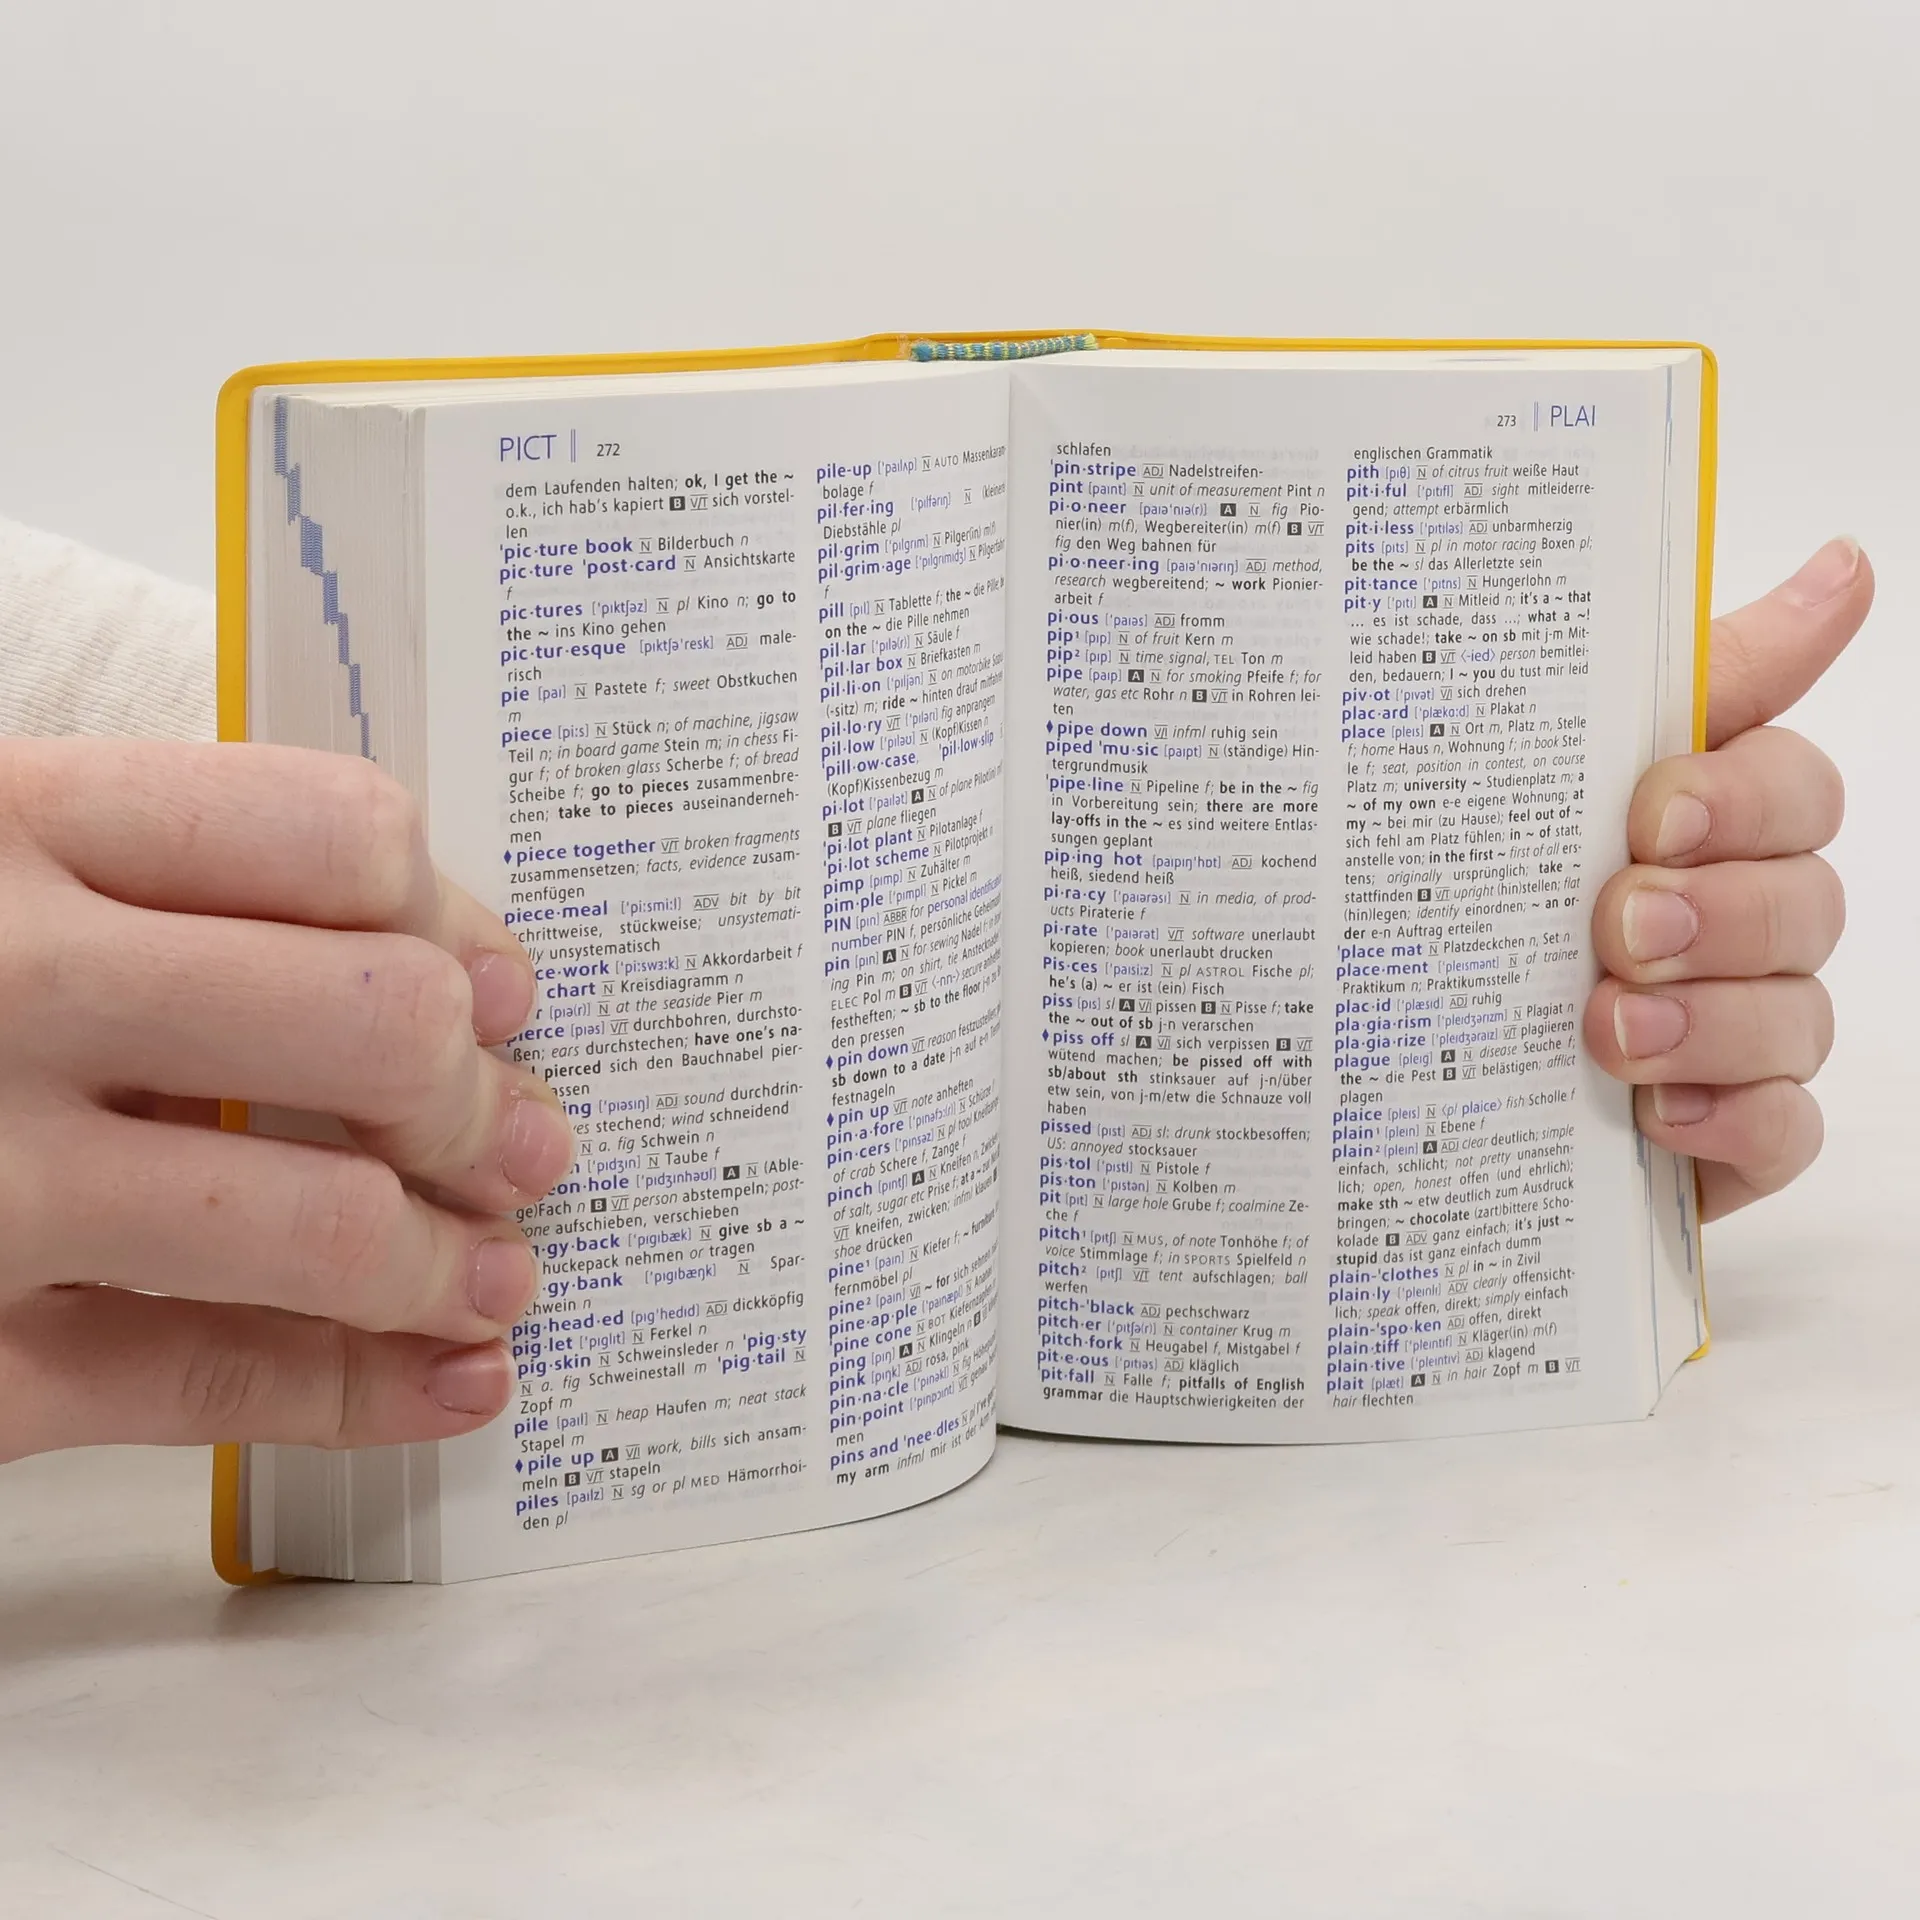 PICT 272
dem Laufenden halten; ok, I get the ~
o.k., ich hab's kapiert B V/T sich vorstel-
len
'pic·ture book N Bilderbuch n
pic·ture 'post·card N Ansichtskarte
f
pic·tures ['pɪktʃəz] N pl Kino n; go to
the ~ ins Kino gehen
pic·tur·esque [pɪktʃə'resk] ADJ male-
risch
pie [paɪ] N Pastete f; sweet Obstkuchen
m
piece [piːs] N Stück n; of machine, jigsaw
Teil n; in board game Stein m; in chess Fi-
gur f; of broken glass Scherbe f; of bread
Scheibe f; go to pieces zusammenbre-
chen; take to pieces auseinanderneh-
men
♦piece together V/T broken fragments
zusammensetzen; facts, evidence zusam-
menfügen
piece·meal ['piːsmiːl] ADV bit by bit
schrittweise, stückweise; unsystemati-
lly unsystematisch
ce·work ['piːswɜːk] N Akkordarbeit f
chart N Kreisdiagramm n
r [pɪə(r)] N at the seaside Pier m
pierce [pɪəs] V/T durchbohren, durchsto-
ßen; ears durchstechen; have one's na-
l pierced sich den Bauchnabel pier-
assen
ing ['pɪəsɪŋ] ADJ sound durchdrin-
yes stechend; wind schneidend
N a. fig Schwein n
n ['pɪdʒɪn] N Taube f
eon·hole ['pɪdʒɪnhəʊl] A N (Able-
ge)Fach n B V/T person abstempeln; post-
one aufschieben, verschieben
g·gy·back ['pɪgɪbæk] N give sb a ~
huckepack nehmen or tragen
·gy·bank ['pɪgɪbæŋk] N Spar-
chwein n
pig·head·ed [pɪg'hedɪd] ADJ dickköpfig
pig·let ['pɪglɪt] N Ferkel n
pig·skin N Schweinsleder n 'pig·sty
N a. fig Schweinestall m 'pig·tail N
Zopf m
pile [paɪl] N heap Haufen m; neat stack
Stapel m
♦pile up A V/I work, bills sich ansam-
meln B V/T stapeln
piles [paɪlz] N sg or pl MED Hämorrhoi-
den pl
pile-up ['paɪlʌp] N AUTO Massenkaram-
bolage f
pil·fer·ing ['pɪlfərɪŋ] N (kleinere
Diebstähle pl
pil·grim ['pɪlgrɪm] N Pilger(in) m(f)
pil·grim·age ['pɪlgrɪmɪdʒ] N Pilgerfahrt
f
pill [pɪl] N Tablette f; the ~ die Pille
on the ~ die Pille nehmen
pil·lar ['pɪlə(r)] N Säule f
'pil·lar box N Briefkasten m
pil·li·on ['pɪljən] N on motorbike
(-sitz) m; ride ~ hinten drauf mitfahren
pil·lo·ry ['pɪlərɪ] V/T fig anprangern
pil·low ['pɪləʊ] N (Kopf)Kissen n
'pill·ow·case, 'pil·low·slip
(Kopf)Kissenbezug m
pi·lot ['paɪlət] A N of plane Pilot(in)
B V/T plane fliegen
'pi·lot plant N Pilotanlage f
'pi·lot scheme N Pilotprojekt n
pimp [pɪmp] N Zuhälter m
pim·ple ['pɪmpl] N Pickel m
PIN [pɪn] ABBR for personal identification
number PIN f, persönliche Geheim
pin [pɪn] A N for sewing Nadel f; in
ing Pin m; on shirt, tie Anstecknadel
ELEC Pol m B V/T ⟨-nn-⟩ secure anheften
festheften; ~ sb to the floor j-n
den pressen
♦pin down V/T reason festzustellen
sb down to a date j-n auf e-n
festnageln
♦pin up V/T note anheften
pin·a·fore ['pɪnəfɔː(r)] N Schürze f
pin·cers ['pɪnsəz] N pl tool Kneifzange
of crab Schere f, Zange f
pinch [pɪntʃ] A N Kneifen n, Zwicken
of salt, sugar etc Prise f; at a ~
V/T kneifen, zwicken; infml klauen B
shoe drücken
pine¹ [paɪn] N Kiefer f; ~ furniture
fernmöbel pl
pine² [paɪn] V/I ~ for sich sehnen
pine·ap·ple ['paɪnæpl] N Ananas
'pine cone N BOT Kiefernzapfen
ping [pɪŋ] A N Klingeln n B V/I
pink [pɪŋk] ADJ rosa, pink
pin·na·cle ['pɪnəkl] N fig Höhepunkt
pin·point ['pɪnpɔɪnt] V/T genau
men
pins and 'nee·dles N pl I've got
my arm infml mir ist der Arm
273 PLAI
schlafen
'pin·stripe ADJ Nadelstreifen-
pint [paɪnt] N unit of measurement Pint n
pi·o·neer [paɪə'nɪə(r)] A N fig Pio-
nier(in) m(f), Wegbereiter(in) m(f) B V/T
fig den Weg bahnen für
pi·o·neer·ing [paɪə'nɪərɪŋ] ADJ method,
research wegbereitend; ~ work Pionier-
arbeit f
pi·ous ['paɪəs] ADJ fromm
pip¹ [pɪp] N of fruit Kern m
pip² [pɪp] N time signal, TEL Ton m
pipe [paɪp] A N for smoking Pfeife f; for
water, gas etc Rohr n B V/T in Rohren lei-
ten
♦pipe down V/I infml ruhig sein
piped 'mu·sic [paɪpt] N (ständige) Hin-
tergrundmusik
'pipe·line N Pipeline f; be in the ~ fig
in Vorbereitung sein; there are more
lay-offs in the ~ es sind weitere Entlas-
sungen geplant
pip·ing hot [paɪpɪŋ'hɒt] ADJ kochend
heiß, siedend heiß
pi·ra·cy ['paɪərəsɪ] N in media, of prod-
ucts Piraterie f
pi·rate ['paɪərət] V/T software unerlaubt
kopieren; book unerlaubt drucken
Pis·ces ['paɪsiːz] N pl ASTROL Fische pl;
he's (a) ~ er ist (ein) Fisch
piss [pɪs] sl A V/I pissen B N Pisse f; take
the ~ out of sb j-n verarschen
♦piss off sl A V/I sich verpissen B V/T
wütend machen; be pissed off with
sb/about sth stinksauer auf j-n/über
etw sein, von j-m/etw die Schnauze voll
haben
pissed [pɪst] ADJ sl: drunk stockbesoffen;
US: annoyed stocksauer
pis·tol ['pɪstl] N Pistole f
pis·ton ['pɪstən] N Kolben m
pit [pɪt] N large hole Grube f; coalmine Ze-
che f
pitch¹ [pɪtʃ] N MUS, of note Tonhöhe f; of
voice Stimmlage f; in SPORTS Spielfeld n
pitch² [pɪtʃ] V/T tent aufschlagen; ball
werfen
pitch-'black ADJ pechschwarz
pitch·er ['pɪtʃə(r)] N container Krug m
'pitch·fork N Heugabel f, Mistgabel f
pit·e·ous ['pɪtɪəs] ADJ kläglich
'pit·fall N Falle f; pitfalls of English
grammar die Hauptschwierigkeiten der
englischen Grammatik
pith [pɪθ] N of citrus fruit weiße Haut
pit·i·ful ['pɪtɪfl] ADJ sight mitleiderre-
gend; attempt erbärmlich
pit·i·less ['pɪtɪləs] ADJ unbarmherzig
pits [pɪts] N pl in motor racing Boxen pl;
be the ~ sl das Allerletzte sein
pit·tance ['pɪtns] N Hungerlohn m
pit·y ['pɪtɪ] A N Mitleid n; it's a ~ that
... es ist schade, dass ...; what a ~!
wie schade!; take ~ on sb mit j-m Mit-
leid haben B V/T ⟨-ied⟩ person bemitlei-
den, bedauern; I ~ you du tust mir leid
piv·ot ['pɪvət] V/I sich drehen
plac·ard ['plækɑːd] N Plakat n
place [pleɪs] A N Ort m, Platz m, Stelle
f; home Haus n, Wohnung f; in book Stel-
le f; seat, position in contest, on course
Platz m; university ~ Studienplatz m; a
~ of my own e-e eigene Wohnung; at
my ~ bei mir (zu Hause); feel out of ~
sich fehl am Platz fühlen; in ~ of statt,
anstelle von; in the first ~ first of all ers-
tens; originally ursprünglich; take ~
stattfinden B V/T upright (hin)stellen; flat
(hin)legen; identify einordnen; ~ an or-
der e-n Auftrag erteilen
'place mat N Platzdeckchen n, Set n
place·ment ['pleɪsmənt] N of trainee
Praktikum n; Praktikumsstelle f
plac·id ['plæsɪd] ADJ ruhig
pla·gia·rism ['pleɪdʒərɪzm] N Plagiat n
pla·gia·rize ['pleɪdʒəraɪz] V/T plagiieren
plague [pleɪg] A N disease Seuche f;
the ~ die Pest B V/T belästigen; afflict
plagen
plaice [pleɪs] N ⟨pl plaice⟩ fish Scholle f
plain¹ [pleɪn] N Ebene f
plain² [pleɪn] A ADJ clear deutlich; simple
einfach, schlicht; not pretty unansehn-
lich; open, honest offen (und ehrlich);
make sth ~ etw deutlich zum Ausdruck
bringen; ~ chocolate (zart)bittere Scho-
kolade B ADV ganz einfach; it's just ~
stupid das ist ganz einfach dumm
plain-'clothes N pl in ~ in Zivil
plain·ly ['pleɪnlɪ] ADV clearly offensicht-
lich; speak offen, direkt; simply einfach
plain-'spo·ken ADJ offen, direkt
plain·tiff ['pleɪntɪf] N Kläger(in) m(f)
plain·tive ['pleɪntɪv] ADJ klagend
plait [plæt] A N in hair Zopf m B V/T
hair flechten